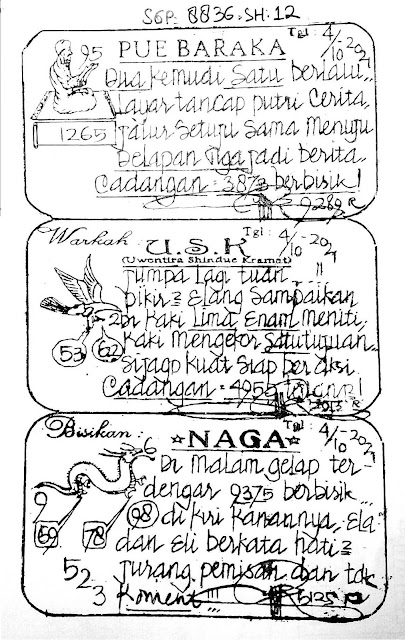 SGP: 8836. SH: 12
PUE BARAKA
Tgl: 4/10-2021
95
1265
Dua kemudi Satu berlalu..
Layar tancap putri Cerita,
Jalur Setuju Sama Menuju
Delapan Tiga jadi berita..
Cadangan = 3873 berbisik!
9289 R
Warkah:
U.S.K
Tgl: 4/10-2021
(Uwentira Shindue Kramat)
Jumpa lagi tuan, "
pikir 2 Elang Sampaikan
Di Kaki Lima Enam Meniti,
Kaki Mengekor Satu tujuan..
Sijago kuat Siap ber aksi.
Cadangan = 4955
53
622
Bisikan:
NAGA
Tgl: 4/10-2021
6
Di Malam gelap ter-
dengar 9375 berbisik...
98 di kiri Kanannya, Ela
dan Eli berkata hati 2
Jurang pemisah dan tdk
Koment !!!
5125 R
9
59
78
52
3